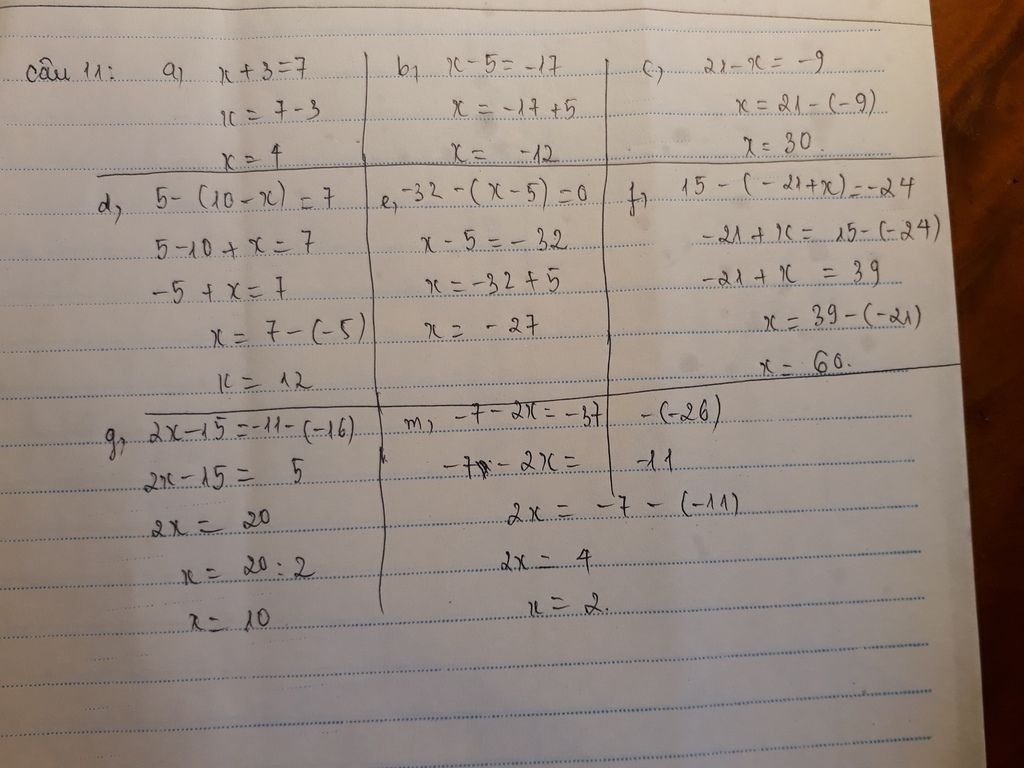 Câu 11: a, x + 3 = 7
x = 7 - 3
x = 4
b, x - 5 = -17
x = -17 + 5
x = -12
c, 21 - x = -9
x = 21 - (-9)
x = 30.
d, 5 - (10 - x) = 7
5 - 10 + x = 7
-5 + x = 7
x = 7 - (-5)
x = 12
e, -32 - (x - 5) = 0
x - 5 = -32
x = -32 + 5
x = -27
f, 15 - (-21 + x) = -24
-21 + x = 15 - (-24)
-21 + x = 39
x = 39 - (-21)
x = 60.
g, 2x - 15 = -11 - (-16)
2x - 15 = 5
2x = 20
x = 20 : 2
x = 10
m, -7 - 2x = -37 - (-26)
-7 - 2x = -11
2x = -7 - (-11)
2x = 4
x = 2.